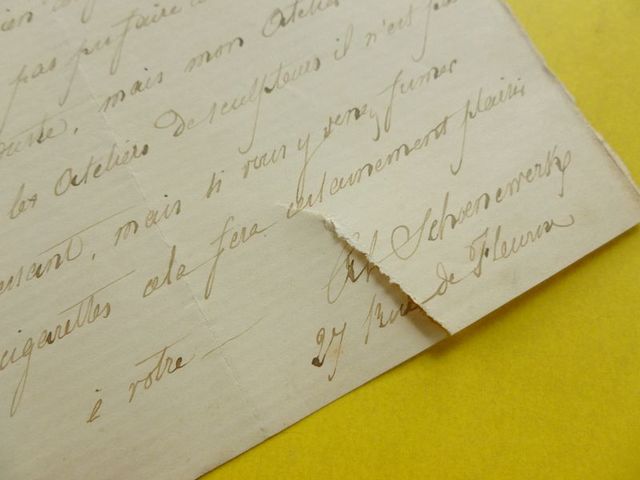 pas pu faire
mais mon atelier
les ateliers de sculpteurs il n'est pas
mais si vous y venez fumer
cigarettes cela fera certainement plaisir
à votre Al Schoenewerk
27 Rue de Fleurus